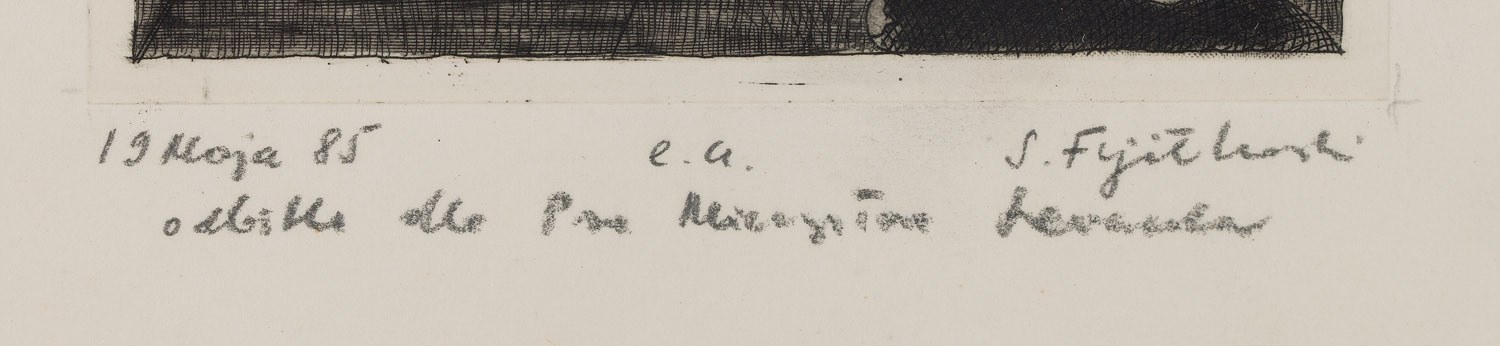 19 Maja 85 e.a. S. Fijałkowski
odbitka dla Pna Mieczysława